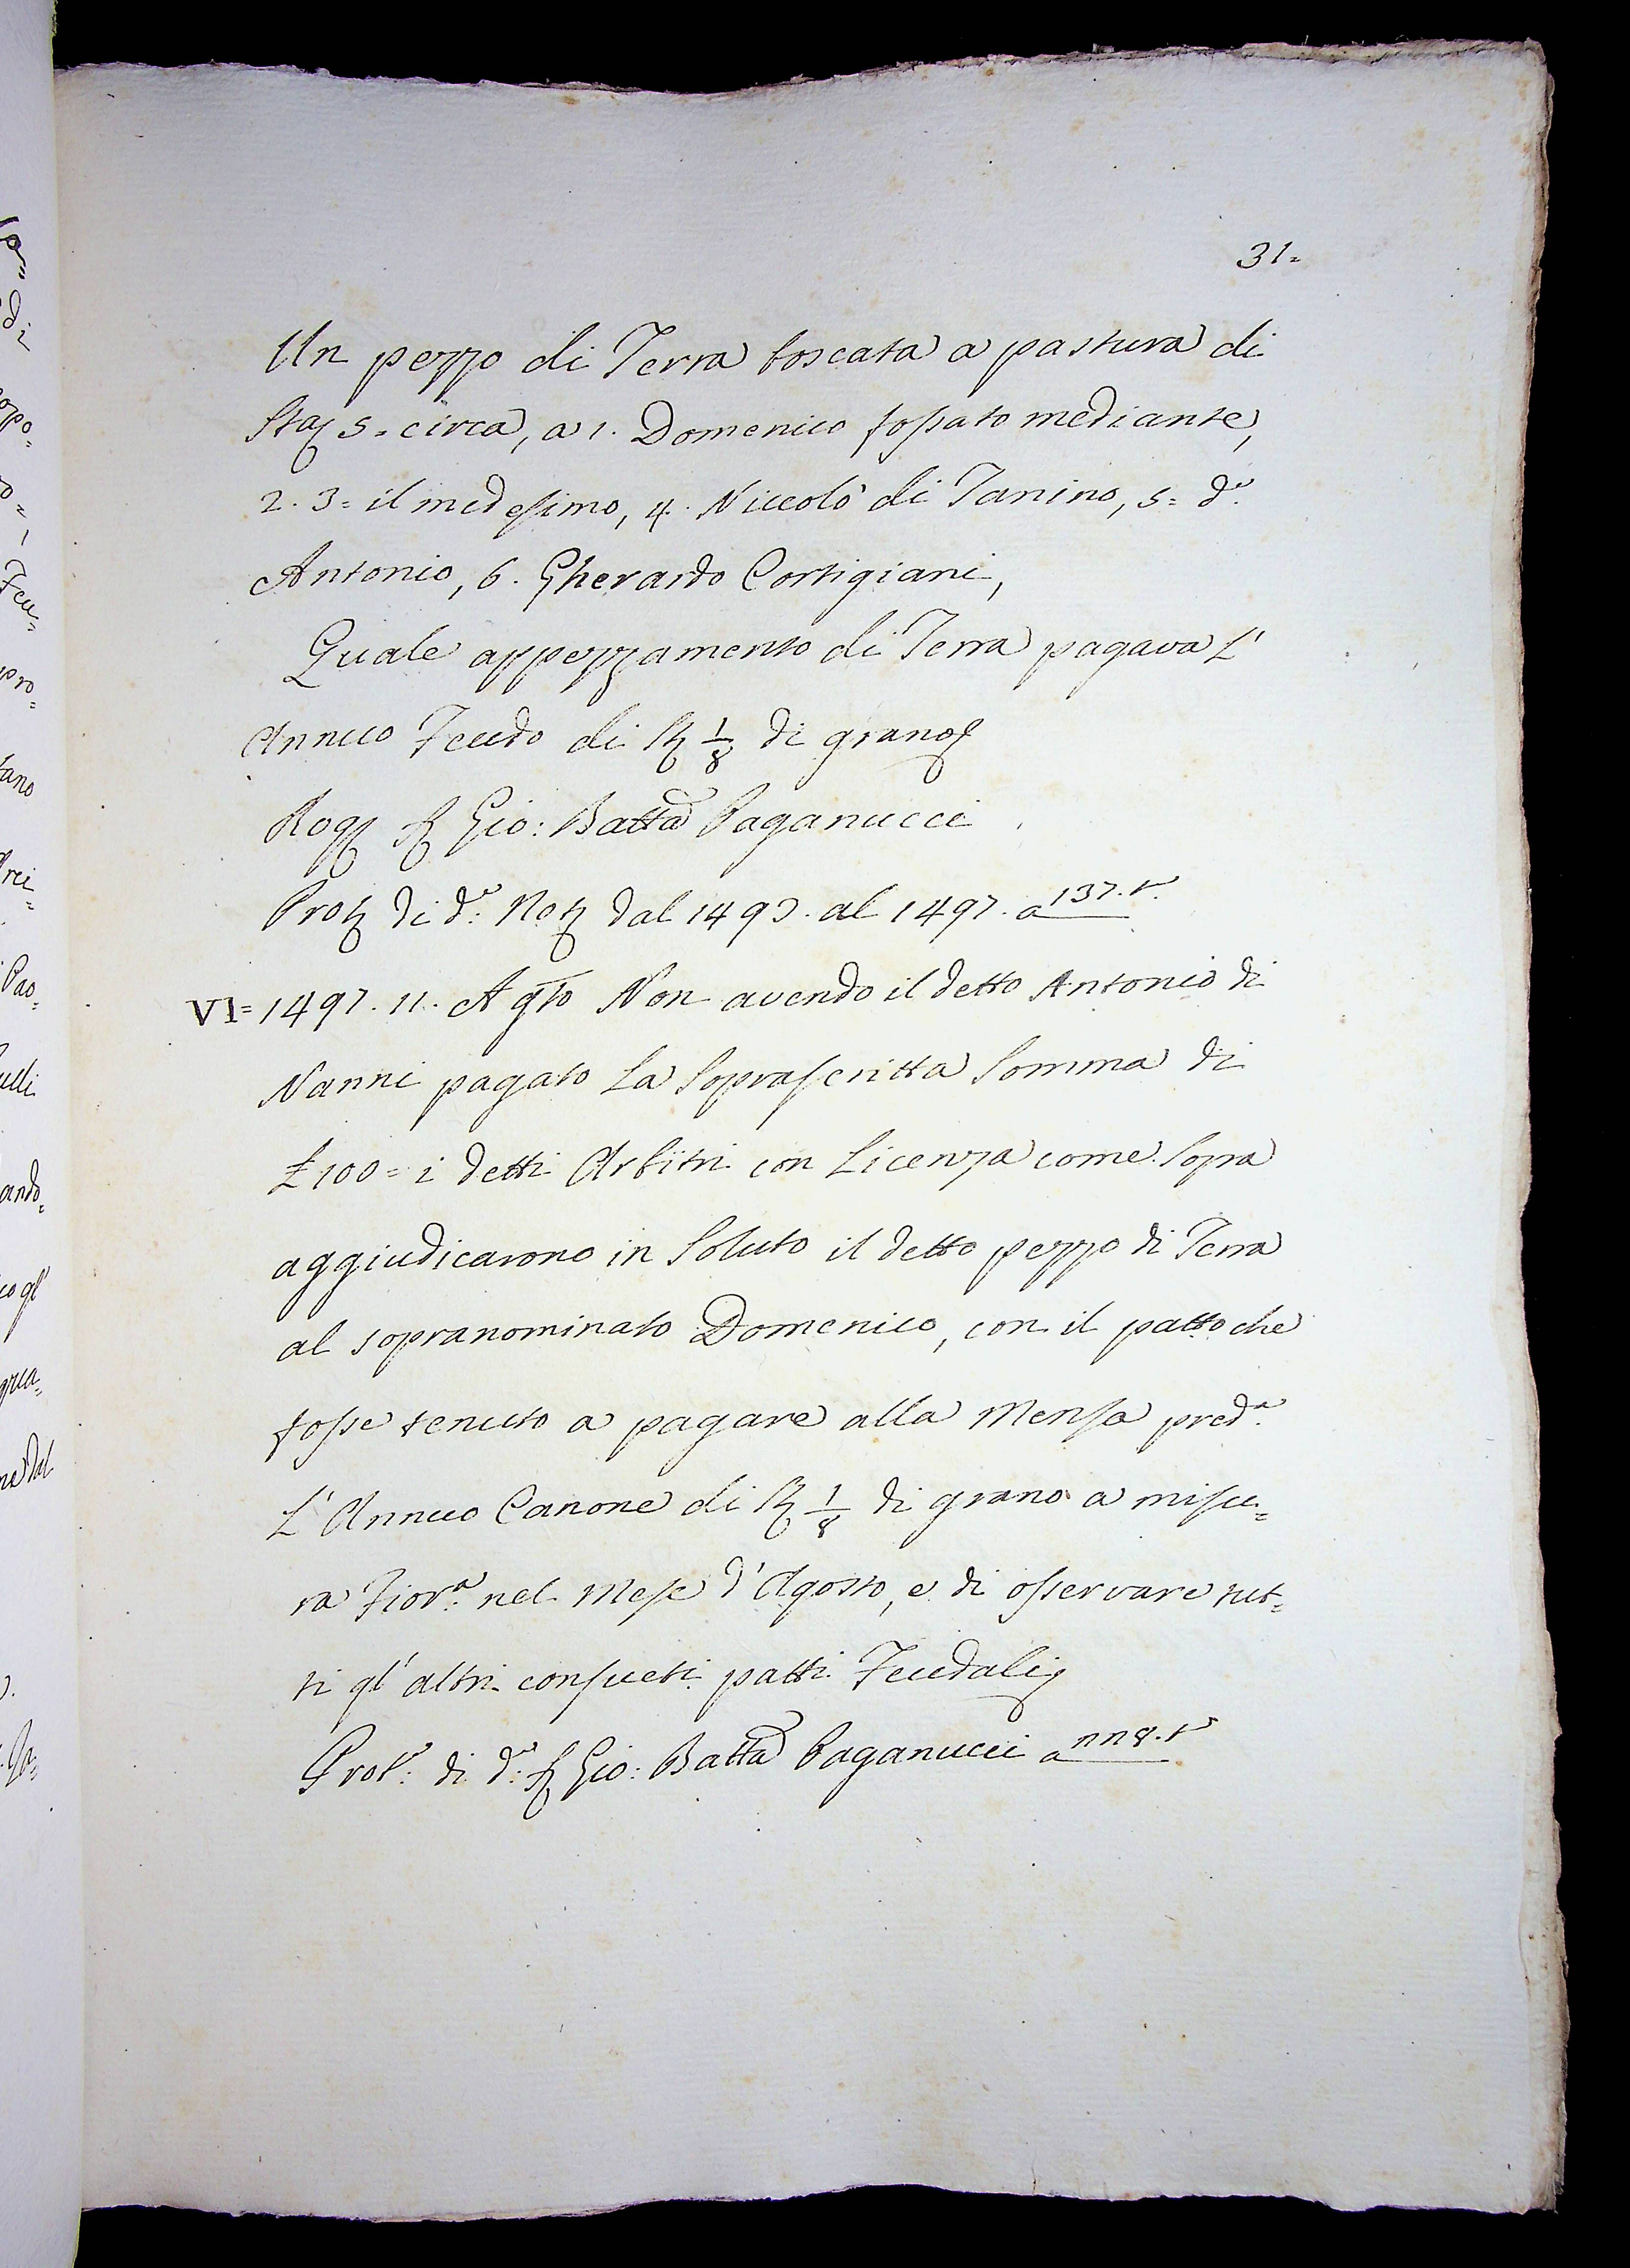 31=
Un pezzo di Terra boscata a pastura di
Staj 5= circa, a 1. Domenico fossato mediante,
2. 3= il medesimo, 4. Niccolò di Tanino, 5= d.º
Antonio, 6. Gherardo Cortigiani,
Quale appezzamento di Terra pagava L'
Annuo Feudo di St 1/8 di grano
Rog S Gio: Batta Paganucci
Prot di d.º Not dal 1493. al 1497. a 137. t.º
VI= 1497. 11. Agto Non avendo il detto Antonio di
Nanni pagato La Soprascritta Somma di
£ 100= i detti Arbitri con Licenza come Sopra
aggiudicarono in Soluto il detto pezzo di Terra
al sopranominato Domenico, con il patto che
fosse tenuto a pagare alla Mensa pred.ª
L'Annuo Canone di St 1/8 di grano a misu=
ra Fior.ª nel Mese d'Agosto, e di osservare tut=
ti gl'altri consueti patti Feudali
Prot.º di d.º S Gio: Batta Paganucci a t.º